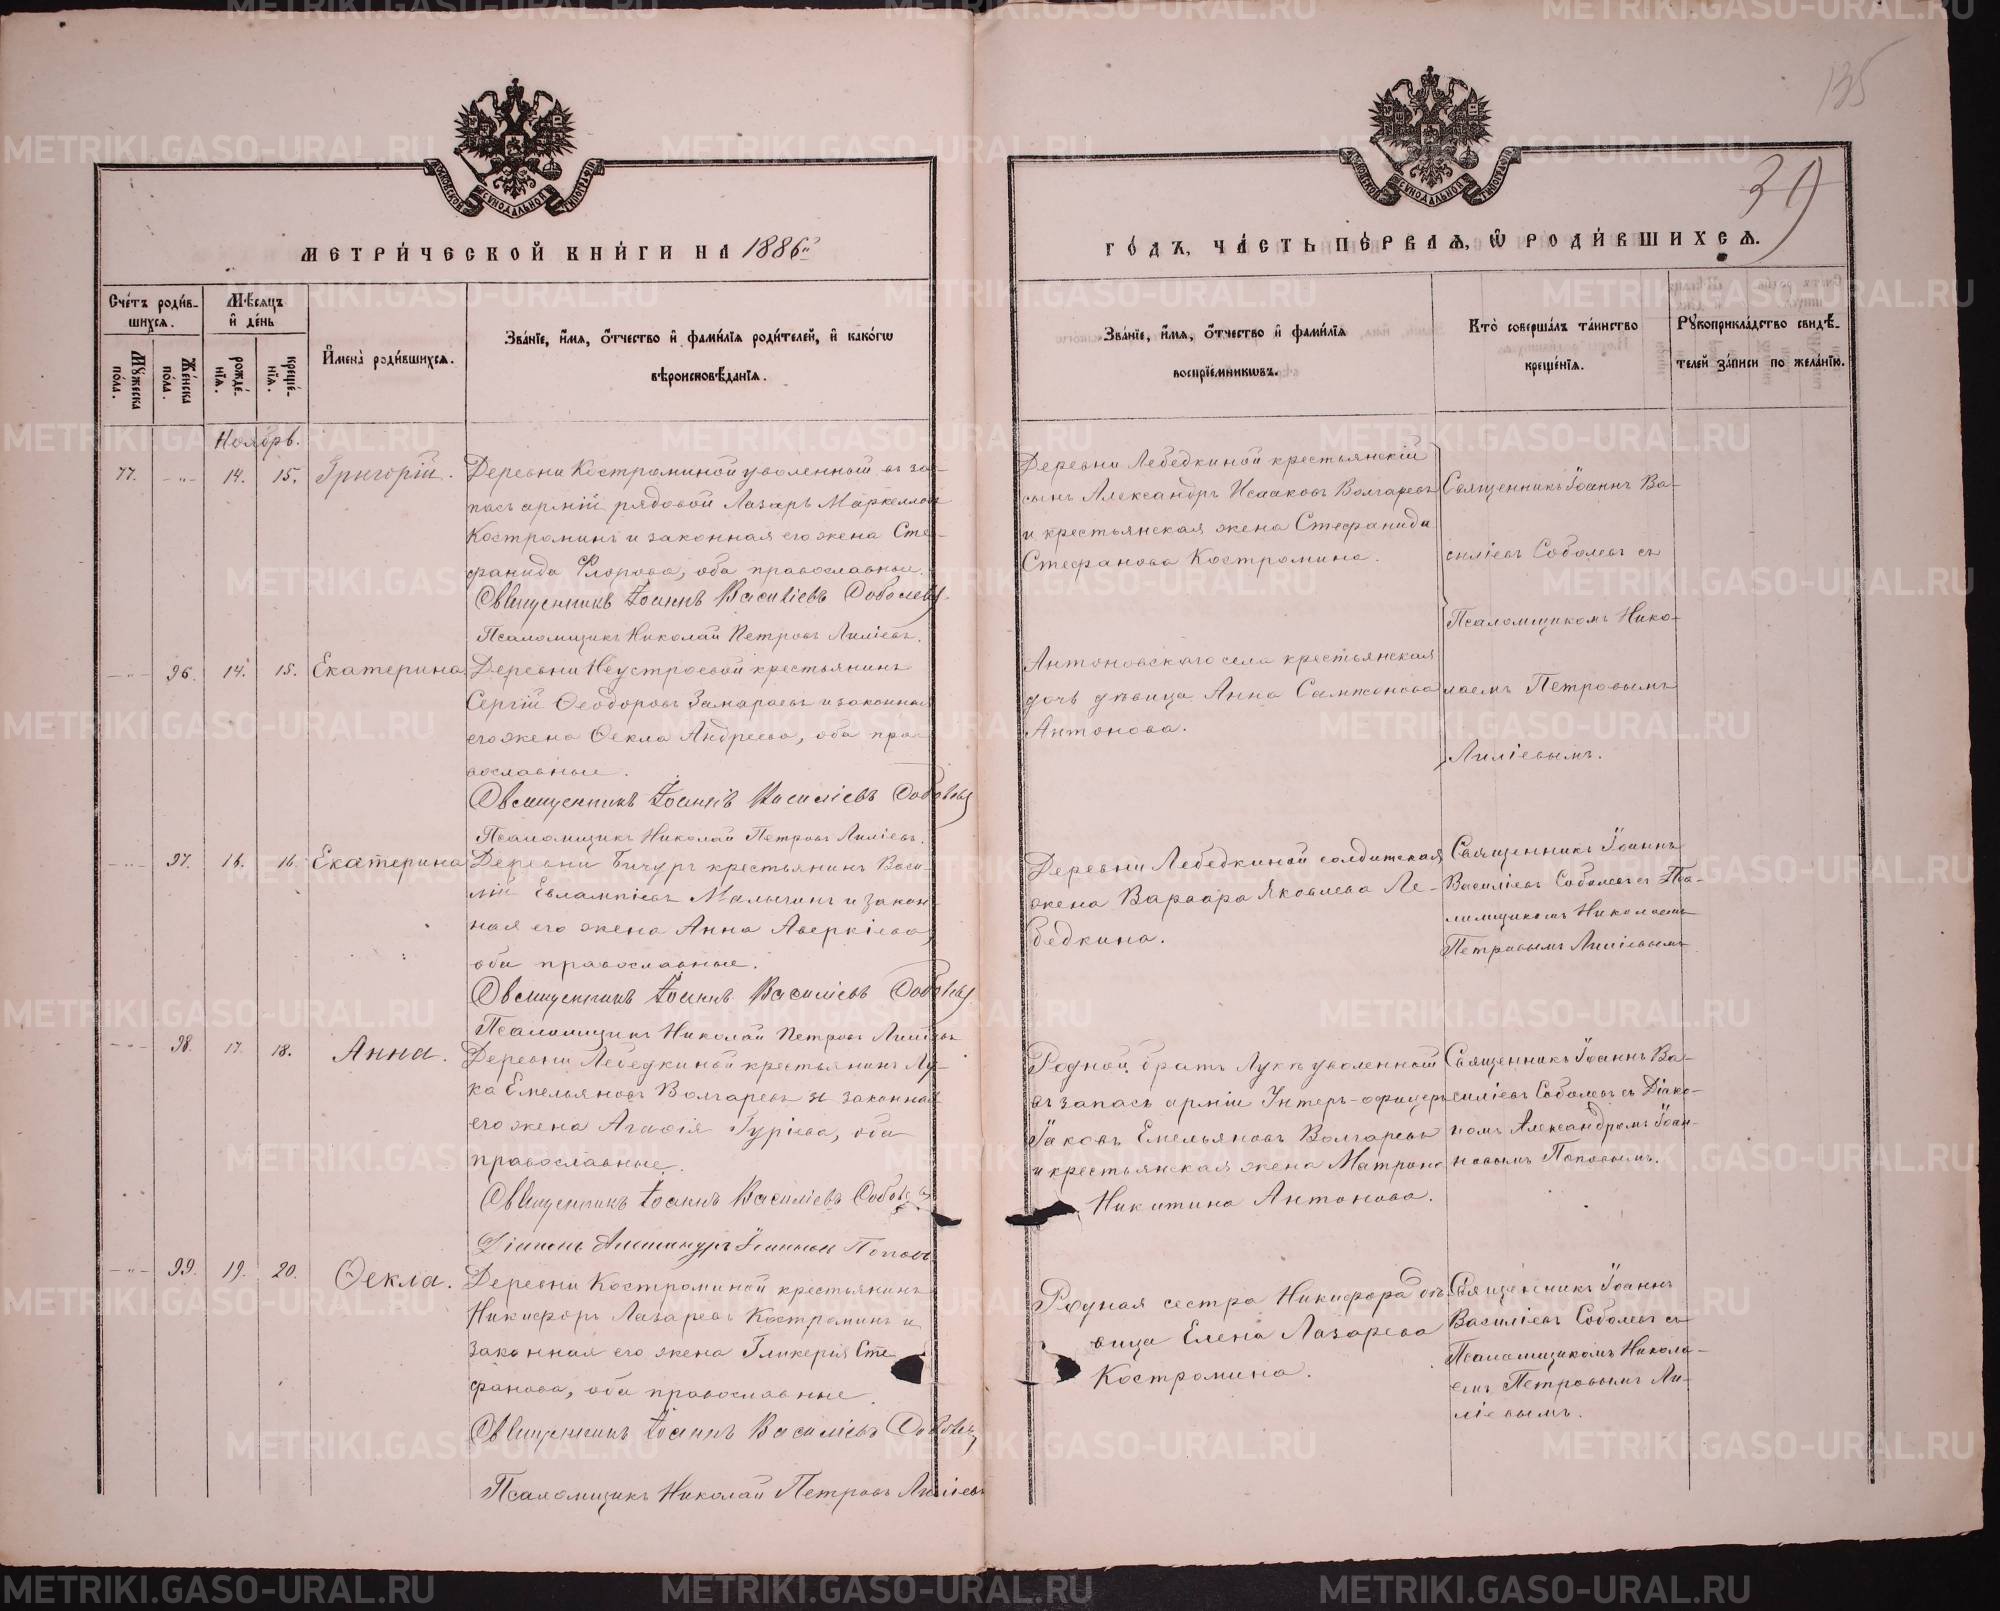 135
39
МОСКОВСКОЙ СѴНОДАЛЬНОЙ ТИПОГРАФІИ
МОСКОВСКОЙ СѴНОДАЛЬНОЙ ТИПОГРАФІИ
МЕТРИ́ЧЕСКОЙ КНИ́ГИ НА 1886й
ГО́ДЪ, ЧА́СТЬ ПЕ́РВАѦ, Ѡ҆ РОДИ́ВШИХСѦ.
Сче́тъ роди́в-
шихсѧ.
Мꙋ́жеска по́ла.
Же́нска по́ла.
Мѣ́сѧцъ
и҆ де́нь
рожде́-
нїѧ.
креще́-
нїѧ.
И҆мена̀ роди́вшихсѧ.
Зва́нїе, и҆́мѧ, ѻ҆́тчество и҆ фами́лїѧ роди́телей, и҆ како́гѡ
вѣроисповѣ́данїѧ.
Зва́нїе, и҆́мѧ, ѻ҆́тчество и҆ фами́лїѧ
воспрїе́мникѡвъ.
Кто̀ соверша́лъ та́инство
креще́нїѧ.
Рꙋкоприкла́дство свидѣ́-
телей за́писи по жела́нїю.
Ноябрь.
77. -"- 14. 15. Григорій.
Деревни Костроминой уволенный въ за-
пасъ армій рядовой Лазарь Маркеллов
Костроминъ и законная его жена Сте-
фанида Флорова, оба православные.
Священникъ Іоаннъ Василіевъ Соболевъ
Псаломщикъ Николай Петровъ Лиліевъ.
Деревни Лебедкиной крестьянскій
сынъ Александръ Исааковъ Волгаревъ
и крестьянская жена Стефанида
Стефанова Костромина.
Священникъ Іоаннъ Ва-
силіевъ Соболевъ съ
Псаломщикомъ Нико-
лаемъ Петровымъ
Лиліевымъ.
-"- 96. 14. 15. Екатерина
Деревни Неустроевой крестьянинъ
Сергій Ѳеодоровъ Замараевъ и законная
его жена Ѳекла Андреева, оба пра-
вославные.
Священникъ Іоаннъ Василіевъ Соболевъ
Псаломщикъ Николай Петровъ Лиліевъ.
Антоновскаго села крестьянская
дочь дѣвица Анна Сампсонова
Антонова.
-"- 97. 16. 16 Екатерина
Деревни Бичуръ крестьянинъ Васи-
лій Евлампіевъ Малыгинъ и закон-
ная его жена Анна Аверкіева,
оба православные.
Священникъ Іоаннъ Василіевъ Соболевъ
Псаломщикъ Николай Петровъ Лиліевъ
Деревни Лебедкиной солдатская
жена Варвара Яковлева Ле-
бедкина.
Священникъ Іоаннъ
Василіевъ Соболевъ съ Пса-
ломщикомъ Николаемъ
Петровымъ Лиліевымъ
-"- 98. 17. 18. Анна.
Деревни Лебедкиной крестьянинъ Лу-
ка Емельяновъ Волгаревъ и законная
его жена Агафія Гуріева, оба
православные.
Священникъ Іоаннъ Василіевъ Соболевъ
Діаконъ Александръ Іоанновъ Поповъ
Родной братъ Луки уволенный
въ запасъ арміи Унтеръ-офицеръ
Іаковъ Емельяновъ Волгаревъ
и крестьянская жена Матрона
Никитина Антонова.
Священникъ Іоаннъ Ва-
силіевъ Соболевъ съ Діако-
номъ Александромъ Іоан-
новымъ Поповымъ.
-"- 99. 19. 20. Ѳекла.
Деревни Костроминой крестьянинъ
Никифоръ Лазаревъ Костроминъ и
законная его жена Гликерія Сте-
фанова, оба православные.
Священникъ Іоаннъ Василіевъ Соболевъ
Псаломщикъ Николай Петровъ Лиліевъ
Родная сестра Никифора дѣ-
вица Елена Лазарева
Костромина.
Священникъ Іоаннъ
Василіевъ Соболевъ съ
Псаломщикомъ Никола-
емъ Петровымъ Ли-
ліевымъ.